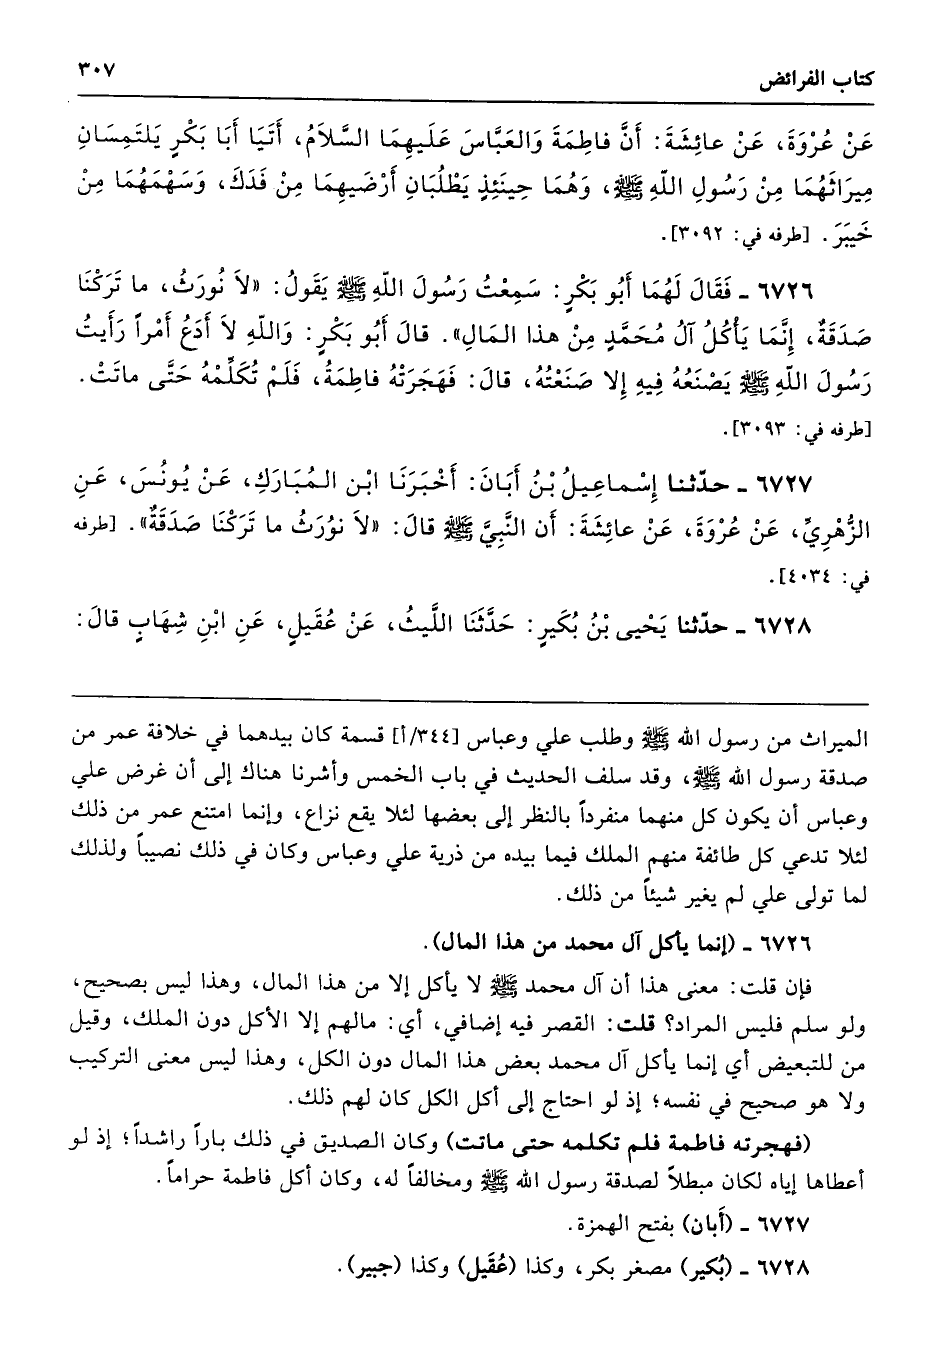 كتاب الفرائض ٣٠٧
عَنْ عُرْوَةَ، عَنْ عائِشَةَ: أَنَّ فاطِمَةَ وَالعَبَّاسَ عَلَيهِمَا السَّلاَمُ، أَتَيَا أَبَا بَكْرٍ يَلتَمِسَانِ
مِيرَاثَهُمَا مِنْ رَسُولِ اللّهِ ﷺ، وَهُمَا حِينَئِذٍ يَطْلُبَانِ أَرْضَيهِمَا مِنْ فَدَكَ، وَسَهْمَهُمَا مِنْ
خَيبَرَ. [طرفه في: ٣٠٩٢].
٦٧٢٦ ـ فَقَالَ لَهُمَا أَبُو بَكْرٍ: سَمِعْتُ رَسُولَ اللّهِ ﷺ يَقُولُ: «لاَ نُورَثُ، ما تَرَكْنَا
صَدَقَةٌ، إِنَّمَا يَأْكُلُ آلُ مُحَمَّدٍ مِنْ هذا المَالِ». قالَ أَبُو بَكْرٍ: وَاللّهِ لاَ أَدَعُ أَمْراً رَأَيتُ
رَسُولَ اللّهِ ﷺ يَصْنَعُهُ فِيهِ إِلا صَنَعْتُهُ، قالَ: فَهَجَرَتْهُ فاطِمَةُ، فَلَمْ تُكَلِّمْهُ حَتَّى ماتَتْ.
[طرفه في: ٣٠٩٣].
٦٧٢٧ ـ حدّثنا إِسْماعِيلُ بْنُ أَبَانَ: أَخْبَرَنَا ابْن المُبَارَكِ، عَنْ يُونُسَ، عَنِ
الزُّهْرِيِّ، عَنْ عُرْوَةَ، عَنْ عائِشَةَ: أَن النَّبِيَّ ﷺ قالَ: «لاَ نوُرَثُ ما تَرَكْنَا صَدَقَةٌ». [طرفه
في: ٤٠٣٤].
٦٧٢٨ ـ حدّثنا يَحْيى بْنُ بُكَيرٍ: حَدَّثَنَا اللَّيثُ، عَنْ عُقَيلٍ، عَنِ ابْنِ شِهَابٍ قالَ:
الميراث من رسول الله ﷺ وطلب علي وعباس [٣٤٤/أ] قسمة كان بيدهما في خلافة عمر من
صدقة رسول الله ﷺ، وقد سلف الحديث في باب الخمس وأشرنا هناك إلى أن غرض علي
وعباس أن يكون كل منهما منفرداً بالنظر إلى بعضها لئلا يقع نزاع، وإنما امتنع عمر من ذلك
لئلا تدعي كل طائفة منهم الملك فيما بيده من ذرية علي وعباس وكان في ذلك نصيباً ولذلك
لما تولى علي لم يغير شيئاً من ذلك.
٦٧٢٦ ـ (إنما يأكل آل محمد من هذا المال).
فإن قلت: معنى هذا أن آل محمد ﷺ لا يأكل إلا من هذا المال، وهذا ليس بصحيح،
ولو سلم فليس المراد؟ قلت: القصر فيه إضافي، أي: مالهم إلا الأكل دون الملك، وقيل
من للتبعيض أي إنما يأكل آل محمد بعض هذا المال دون الكل، وهذا ليس معنى التركيب
ولا هو صحيح في نفسه؛ إذ لو احتاج إلى أكل الكل كان لهم ذلك.
(فهجرته فاطمة فلم تكلمه حتى ماتت) وكان الصديق في ذلك باراً راشداً؛ إذ لو
أعطاها إياه لكان مبطلاً لصدقة رسول الله ﷺ ومخالفاً له، وكان أكل فاطمة حراماً.
٦٧٢٧ ـ (أَبان) بفتح الهمزة.
٦٧٢٨ ـ (بُكير) مصغر بكر، وكذا (عُقَيل) وكذا (جبير).